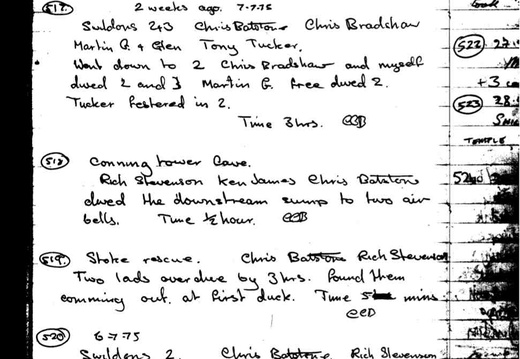 517. 2 weeks ago. 7-7-75
Swildons 2+3 Chris Batstone Chris Bradshaw
Martin G. + Glen Tony Tucker.
Went down to 2 Chris Bradshaw and myself
dived 2 and 3 Martin G. free dived 2.
Tucker festered in 2.
Time 3hrs.
518 Conning tower Cave.
Rich Stevenson Ken James Chris Batstone
dived the downstream sump to two air
bells. Time ½ hour.
519. Stoke rescue. Chris Batstone Rich Stevenson
Two lads overdue by 3 hrs. Found them
comming out. at first duck. Time mins
520 6-7-75
Swildons 2. Chris Batstone Rich Stevenson
522 27
+3
523 28
TEMPLE